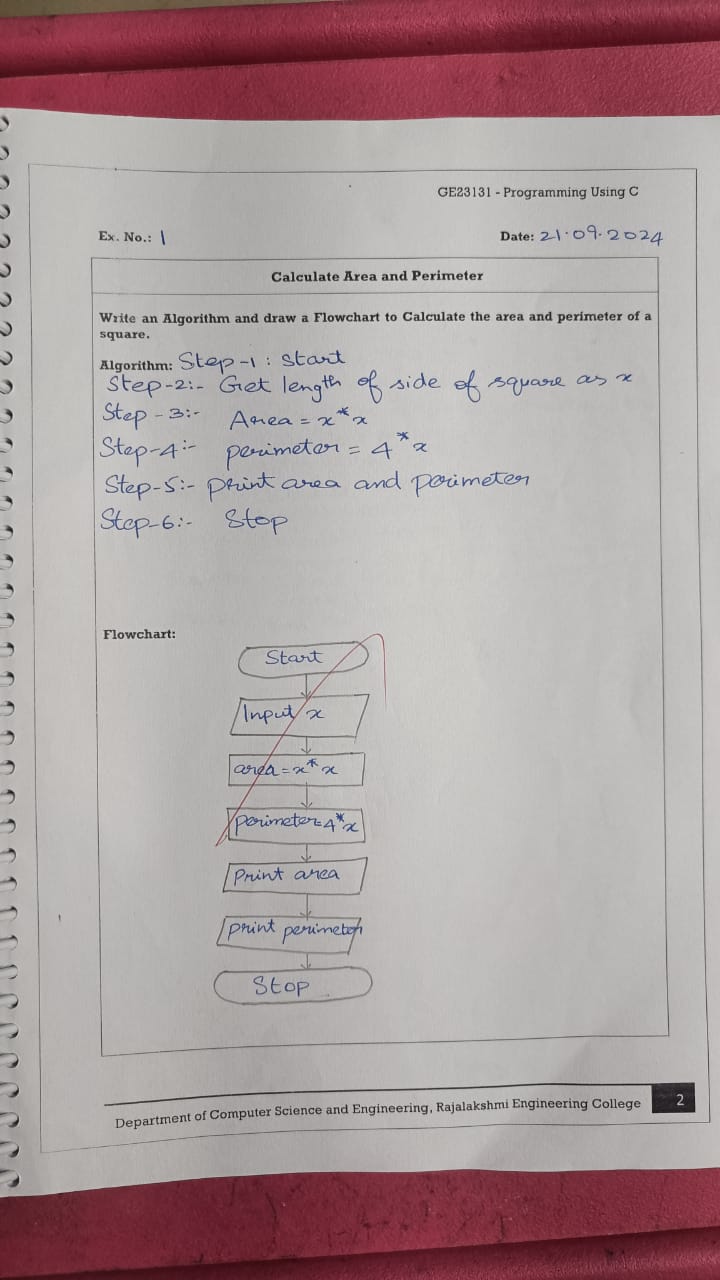 GE23131 - Programming Using C
Ex. No.: 1 Date: 21.09.2024
Calculate Area and Perimeter
Write an Algorithm and draw a Flowchart to Calculate the area and perimeter of a
square.
Algorithm: Step-1 : Start
Step-2:- Get length of side of square as x
Step-3:- Area = x*x
Step-4:- perimeter = 4*x
Step-5:- print area and perimeter
Step-6:- Stop
Flowchart:
Start
Input x
area = x*x
perimeter=4*x
Print area
print perimeter
Stop
Department of Computer Science and Engineering, Rajalakshmi Engineering College 2